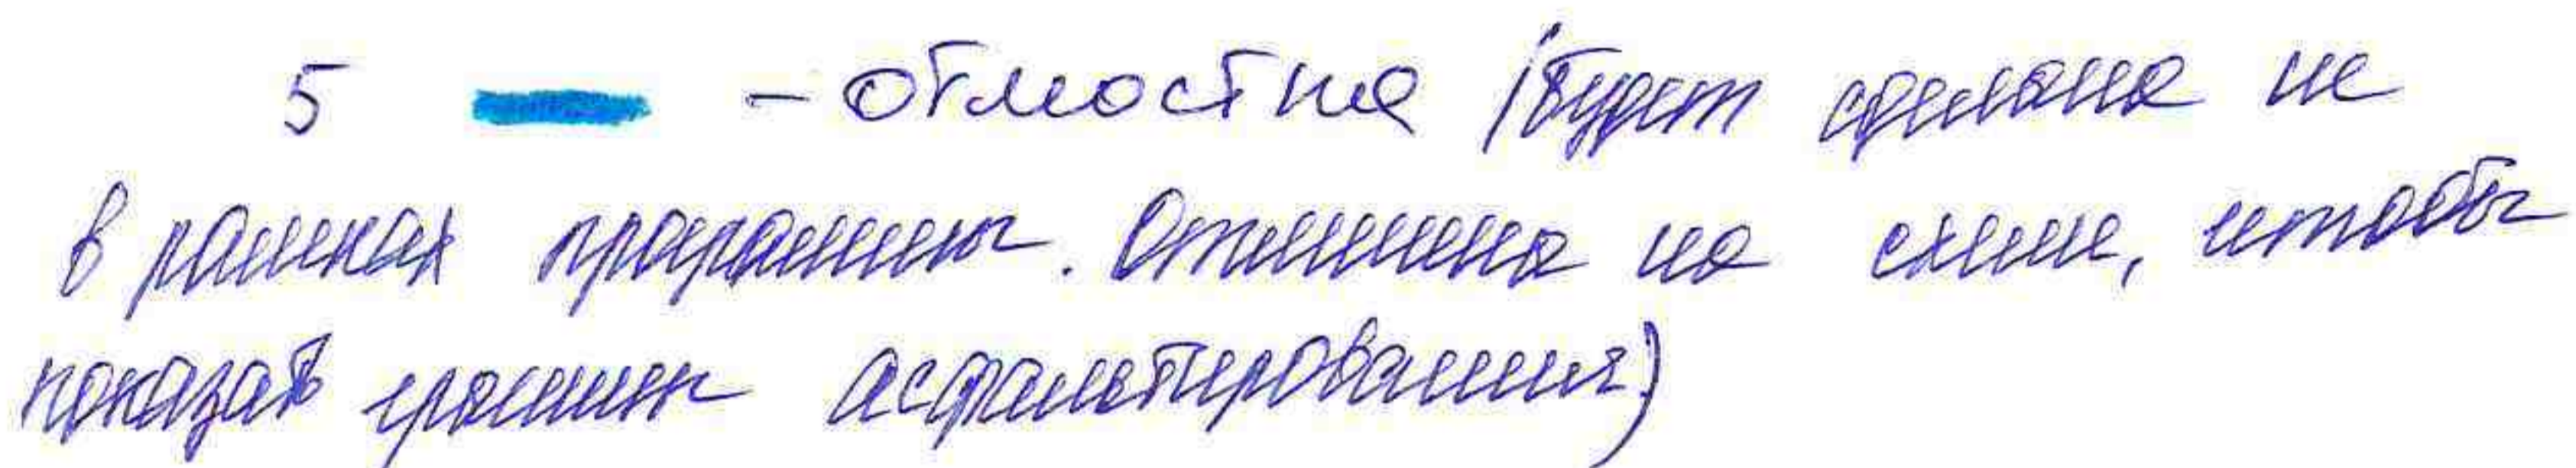 5 - отмостка (будет сделана не
в рамках программы. Отмечена на схеме, чтобы
показать границы асфальтирования)